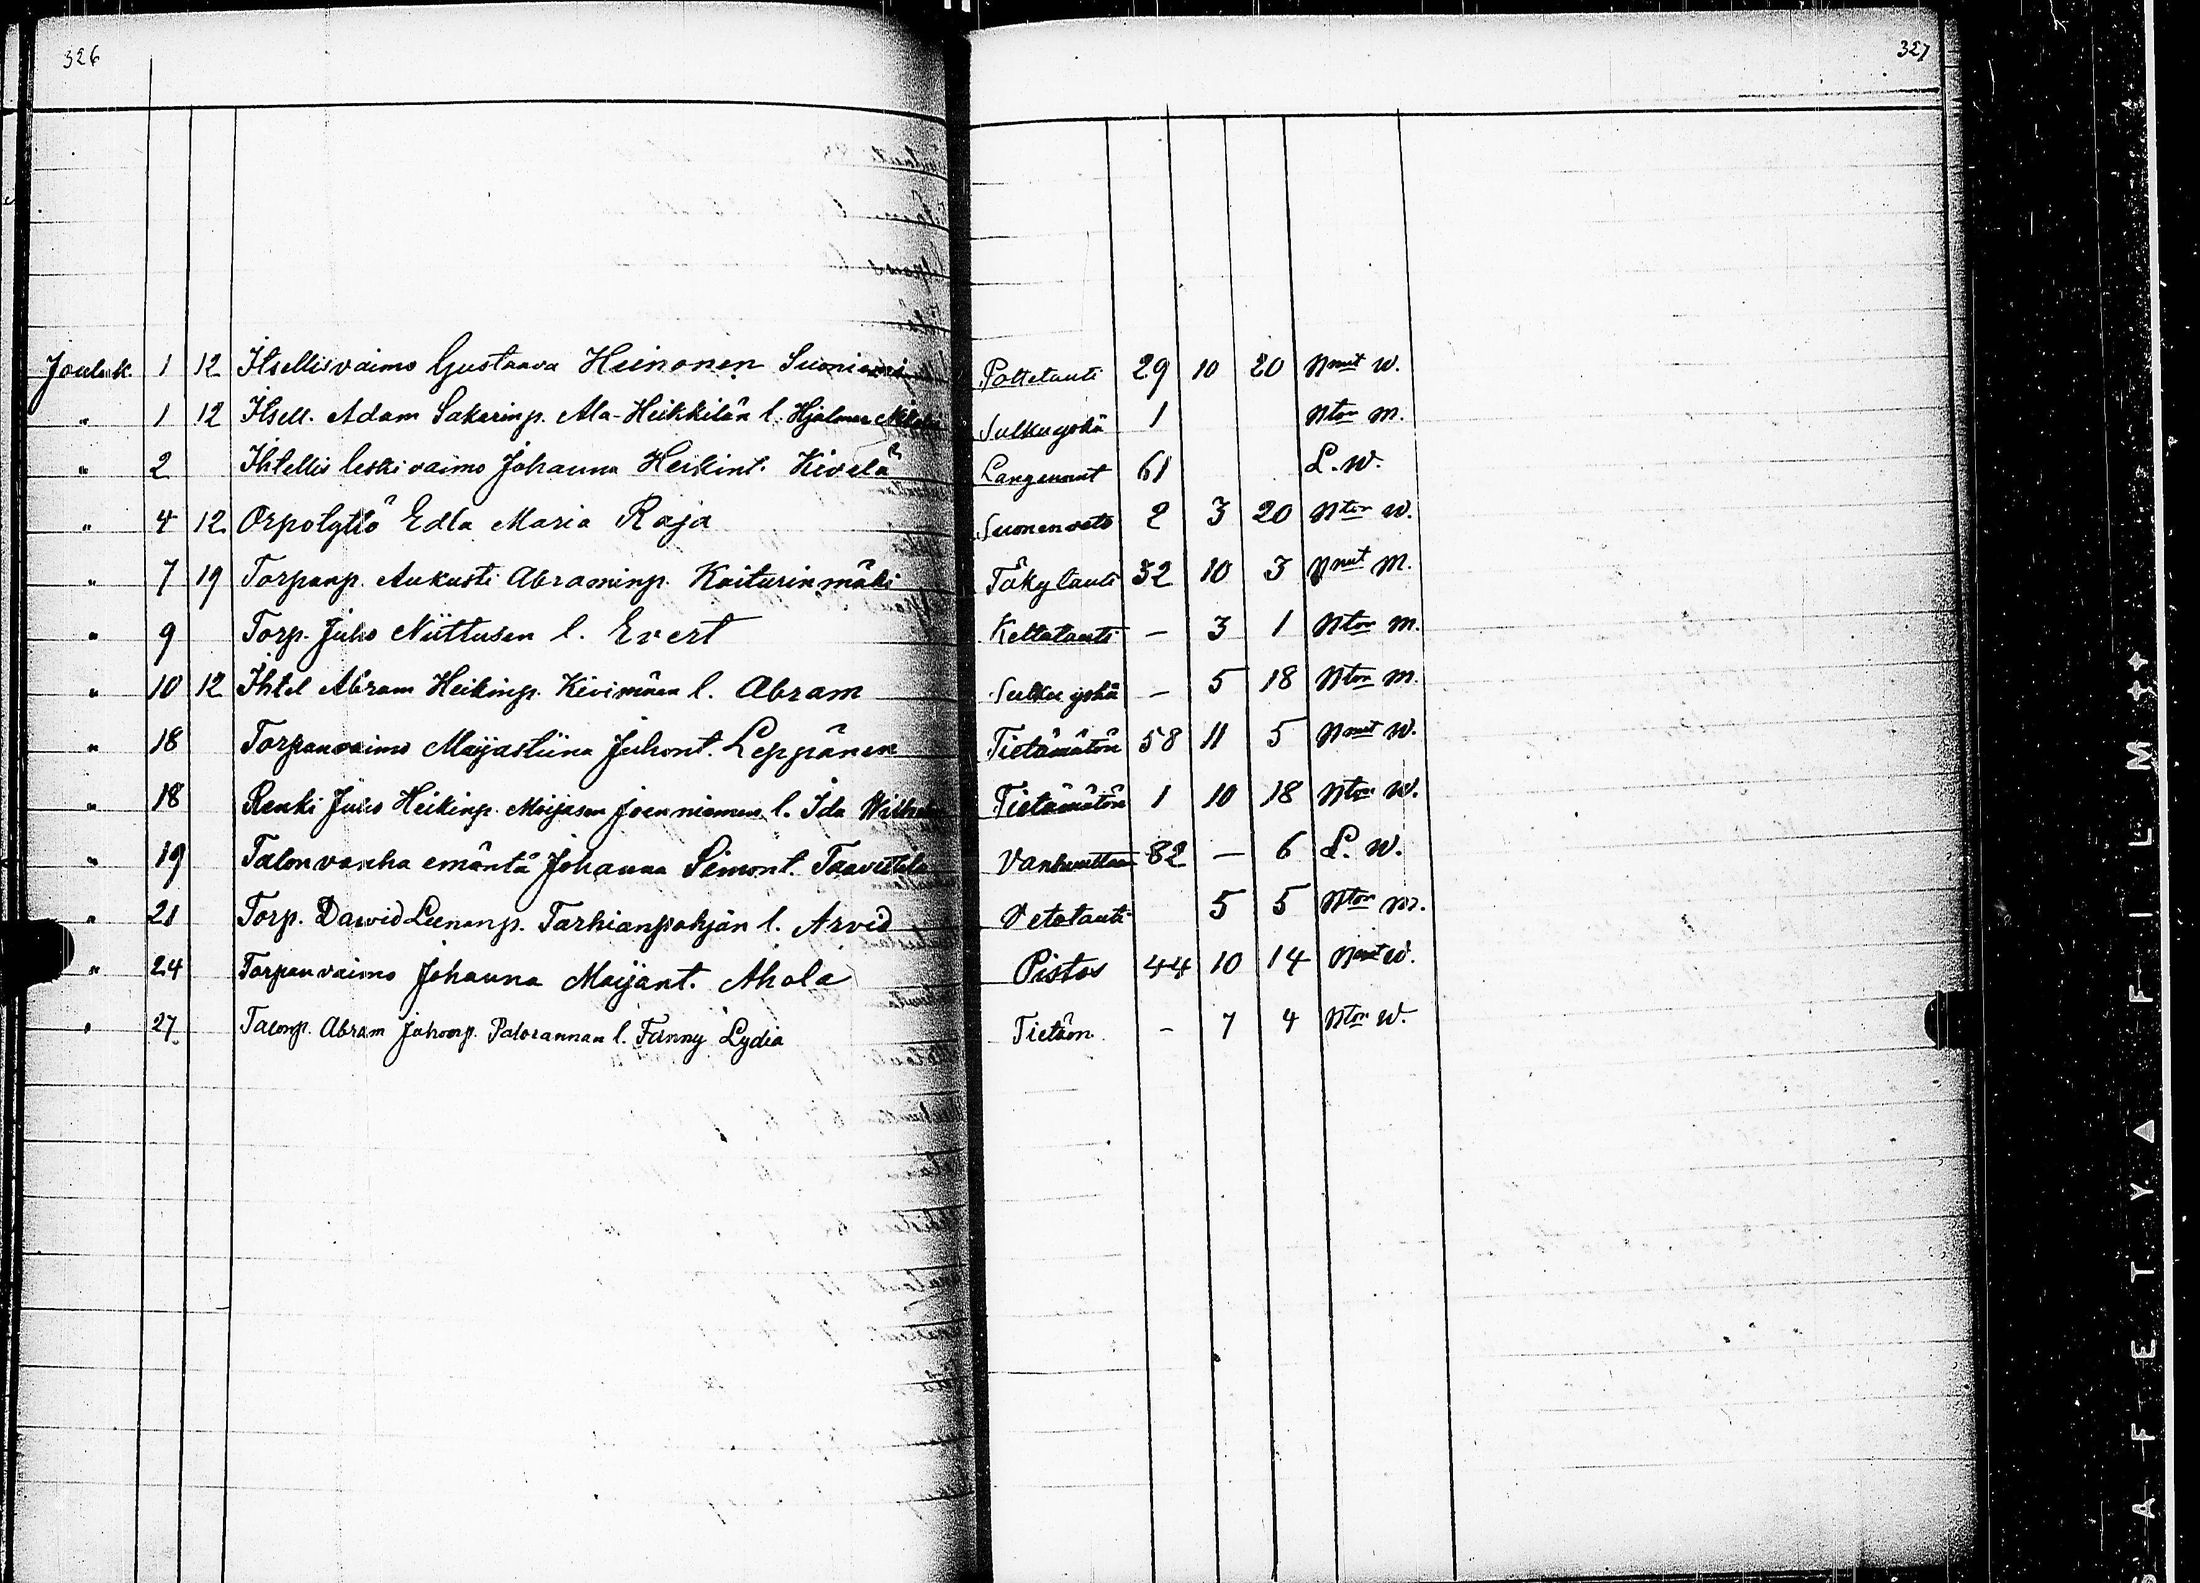 326
327
Jouluk. 1 12 Itsellisvaimo Gustaava Heinonen Suoniemi Poltetauti 29 10 20 Nmut w.
" 1 12 Itsell. Adam Sakarinp. Ala-Heikkilän l. Hjalmar Sulkuyskä 1 Nton m.
" 2 Ihtellis leskivaimo Johanna Heikint. Kivelä Langennut 61 L. w.
" 4 12 Orpotyttö Edla Maria Raja Suonenveto 2 3 20 Nton w.
" 7 19 Torpanp. Aukusti Abraminp. Kaiturinmäki Täkytauti 32 10 3 Nmut m.
" 9 Torp. Juho Niittusen l. Evert Keltatauti - 3 1 Nton m.
" 10 12 Ihtel Abram Heikinp. Kivimäen l. Abram Sulku yskä - 5 18 Nton m.
" 18 Torpanvaimo Maijastiina Juhont. Leppänen Tietämätön 58 11 5 Nmut w.
" 18 Renki Juho Heikinp. Maijasen Joenniemen l. Ida Tietämätön 1 10 18 Nton w.
" 19 Talon vanha emäntä Johanna Simont. Taavettila Vanhuuttaan 82 - 6 L. w.
" 21 Torp. Dawid Leenanp. Tarhianpohjan l. Arvid Vetotauti 5 5 Nton m.
" 24 Torpanvaimo Johanna Maijant. Ahola Pistos 44 10 14 Nmut w.
" 27 Talonp. Abram Juhonp. Palorannan l. Fanny Lydia Tietäm. - 7 4 Nton w.
SAFETY ▲ FILM